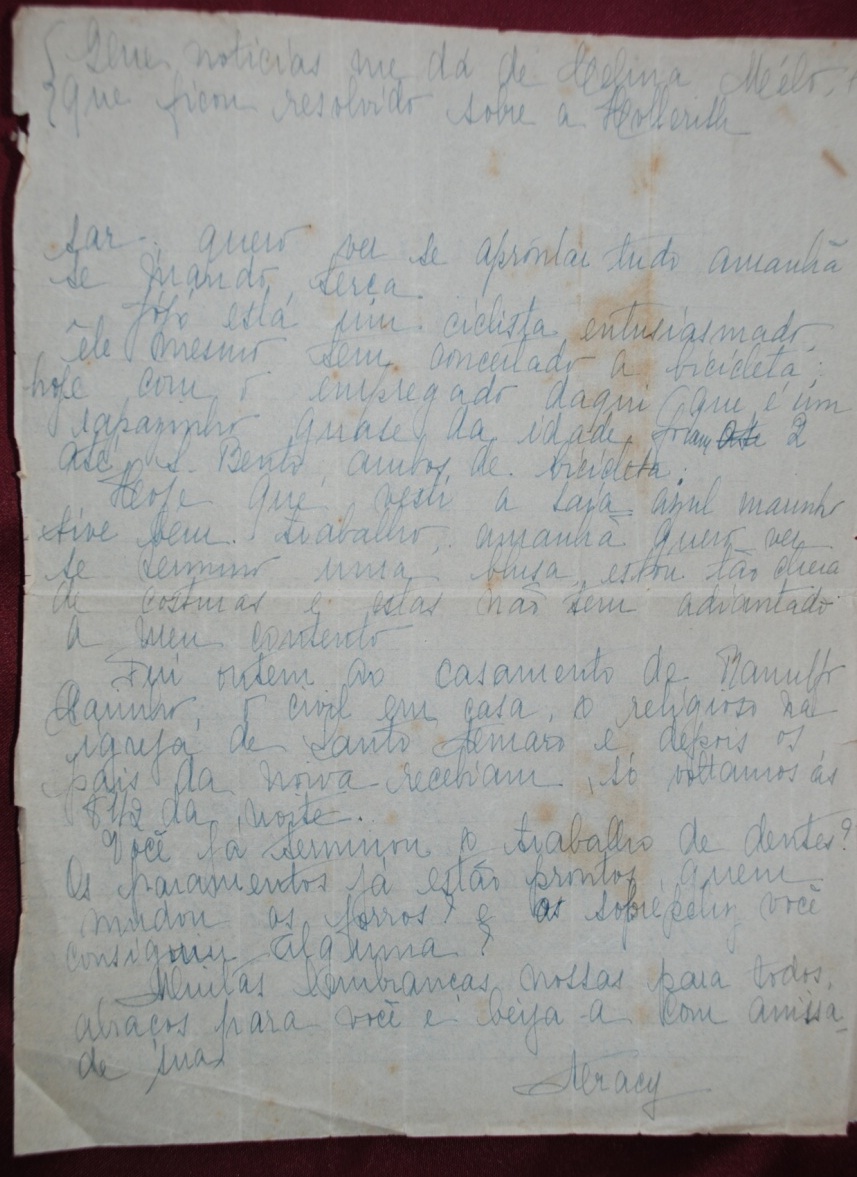 Que noticias me dá de Helina Mélo,
que ficou resolvido sobre a Hollerith
sar. quero ver se apronto tudo amanhã
se mando terça.
Jójó está um ciclista entusiasmado,
êle mesmo tem concertado a bicicleta;
hoje com o empregado daqui (que é um
rapazinho quase da idade, foram 2
até S. Bento, ambos de bicicleta.
Hoje que vesti a saia azul marinho
tive bem trabalho, amanhã quero ver
se termino uma blusa, estou tão cheia
de costuras e estas não tem adiantado
a meu contento
Fui ontem ao casamento de Ranulfo
; o civil em casa, o religioso na
igreja de Santo Amaro e depois os
pais da noiva recebiam, só voltamos ás
8 1/2 da noite.
Você já terminou o trabalho de dentes?
Os paramentos já estão prontos, quem
mudou os forros? e as sobrepeliz você
consiguiu alguma?
Muitas lembranças nossas para todos,
abraços para você e beija-a com amisa-
de sua
Aracy